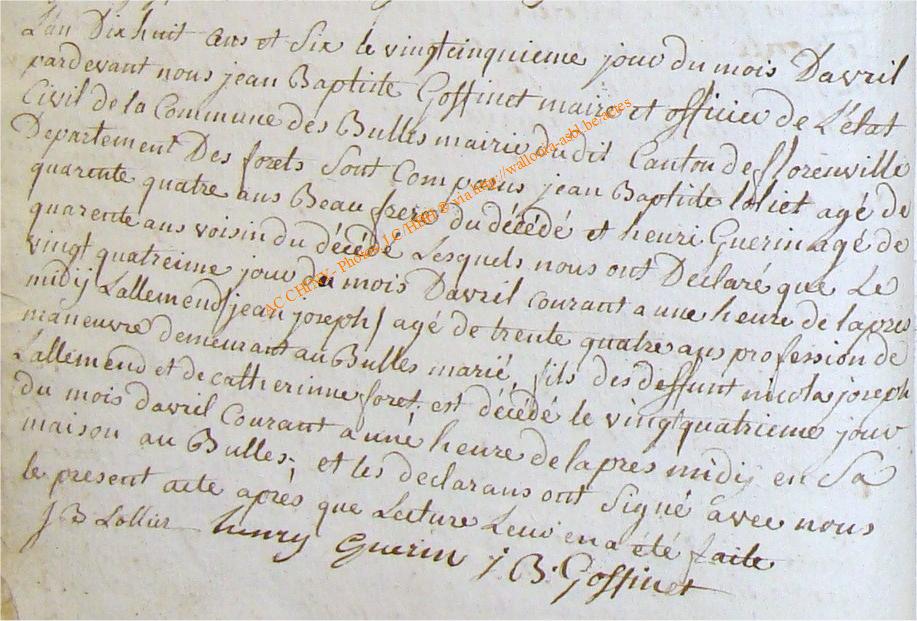 L'an Dixhuit cens et Six le vingtcinquieme jour du mois Davril
pardevant nous jean Baptiste Goffinet maire et officier de L'état
Civil de la Commune des Bulles mairie dudit Canton de florenville
Departement Des forets Sont Comparus jean Baptiste loliet agé de
quarente quatre ans Beau frere du décédé et henri Guerin agé de
quarente ans voisin du décédé Lesquels nous ont Declaré que Le
vingt quatreime jour du mois Davril courant a une heure de lapres
midij Lallemend /jean joseph/ agé de trente quatre ans profession de
maneuvre demeurant au Bulles marié, fils des deffunt nicolas joseph
Lallemend et de catherinne foret, est décédé le vingtquatrieme jour
du mois davril courant a une heure de lapres midij en Sa
maison au Bulles; et les declarans ont Signé avec nous
le present acte après que Lecture Leur en a été faite
J B Lollier henry Guerin J. B. Goffinet
AC CHINY - Photos J.C. HBR © via http://wallonia-asbl.be/actes